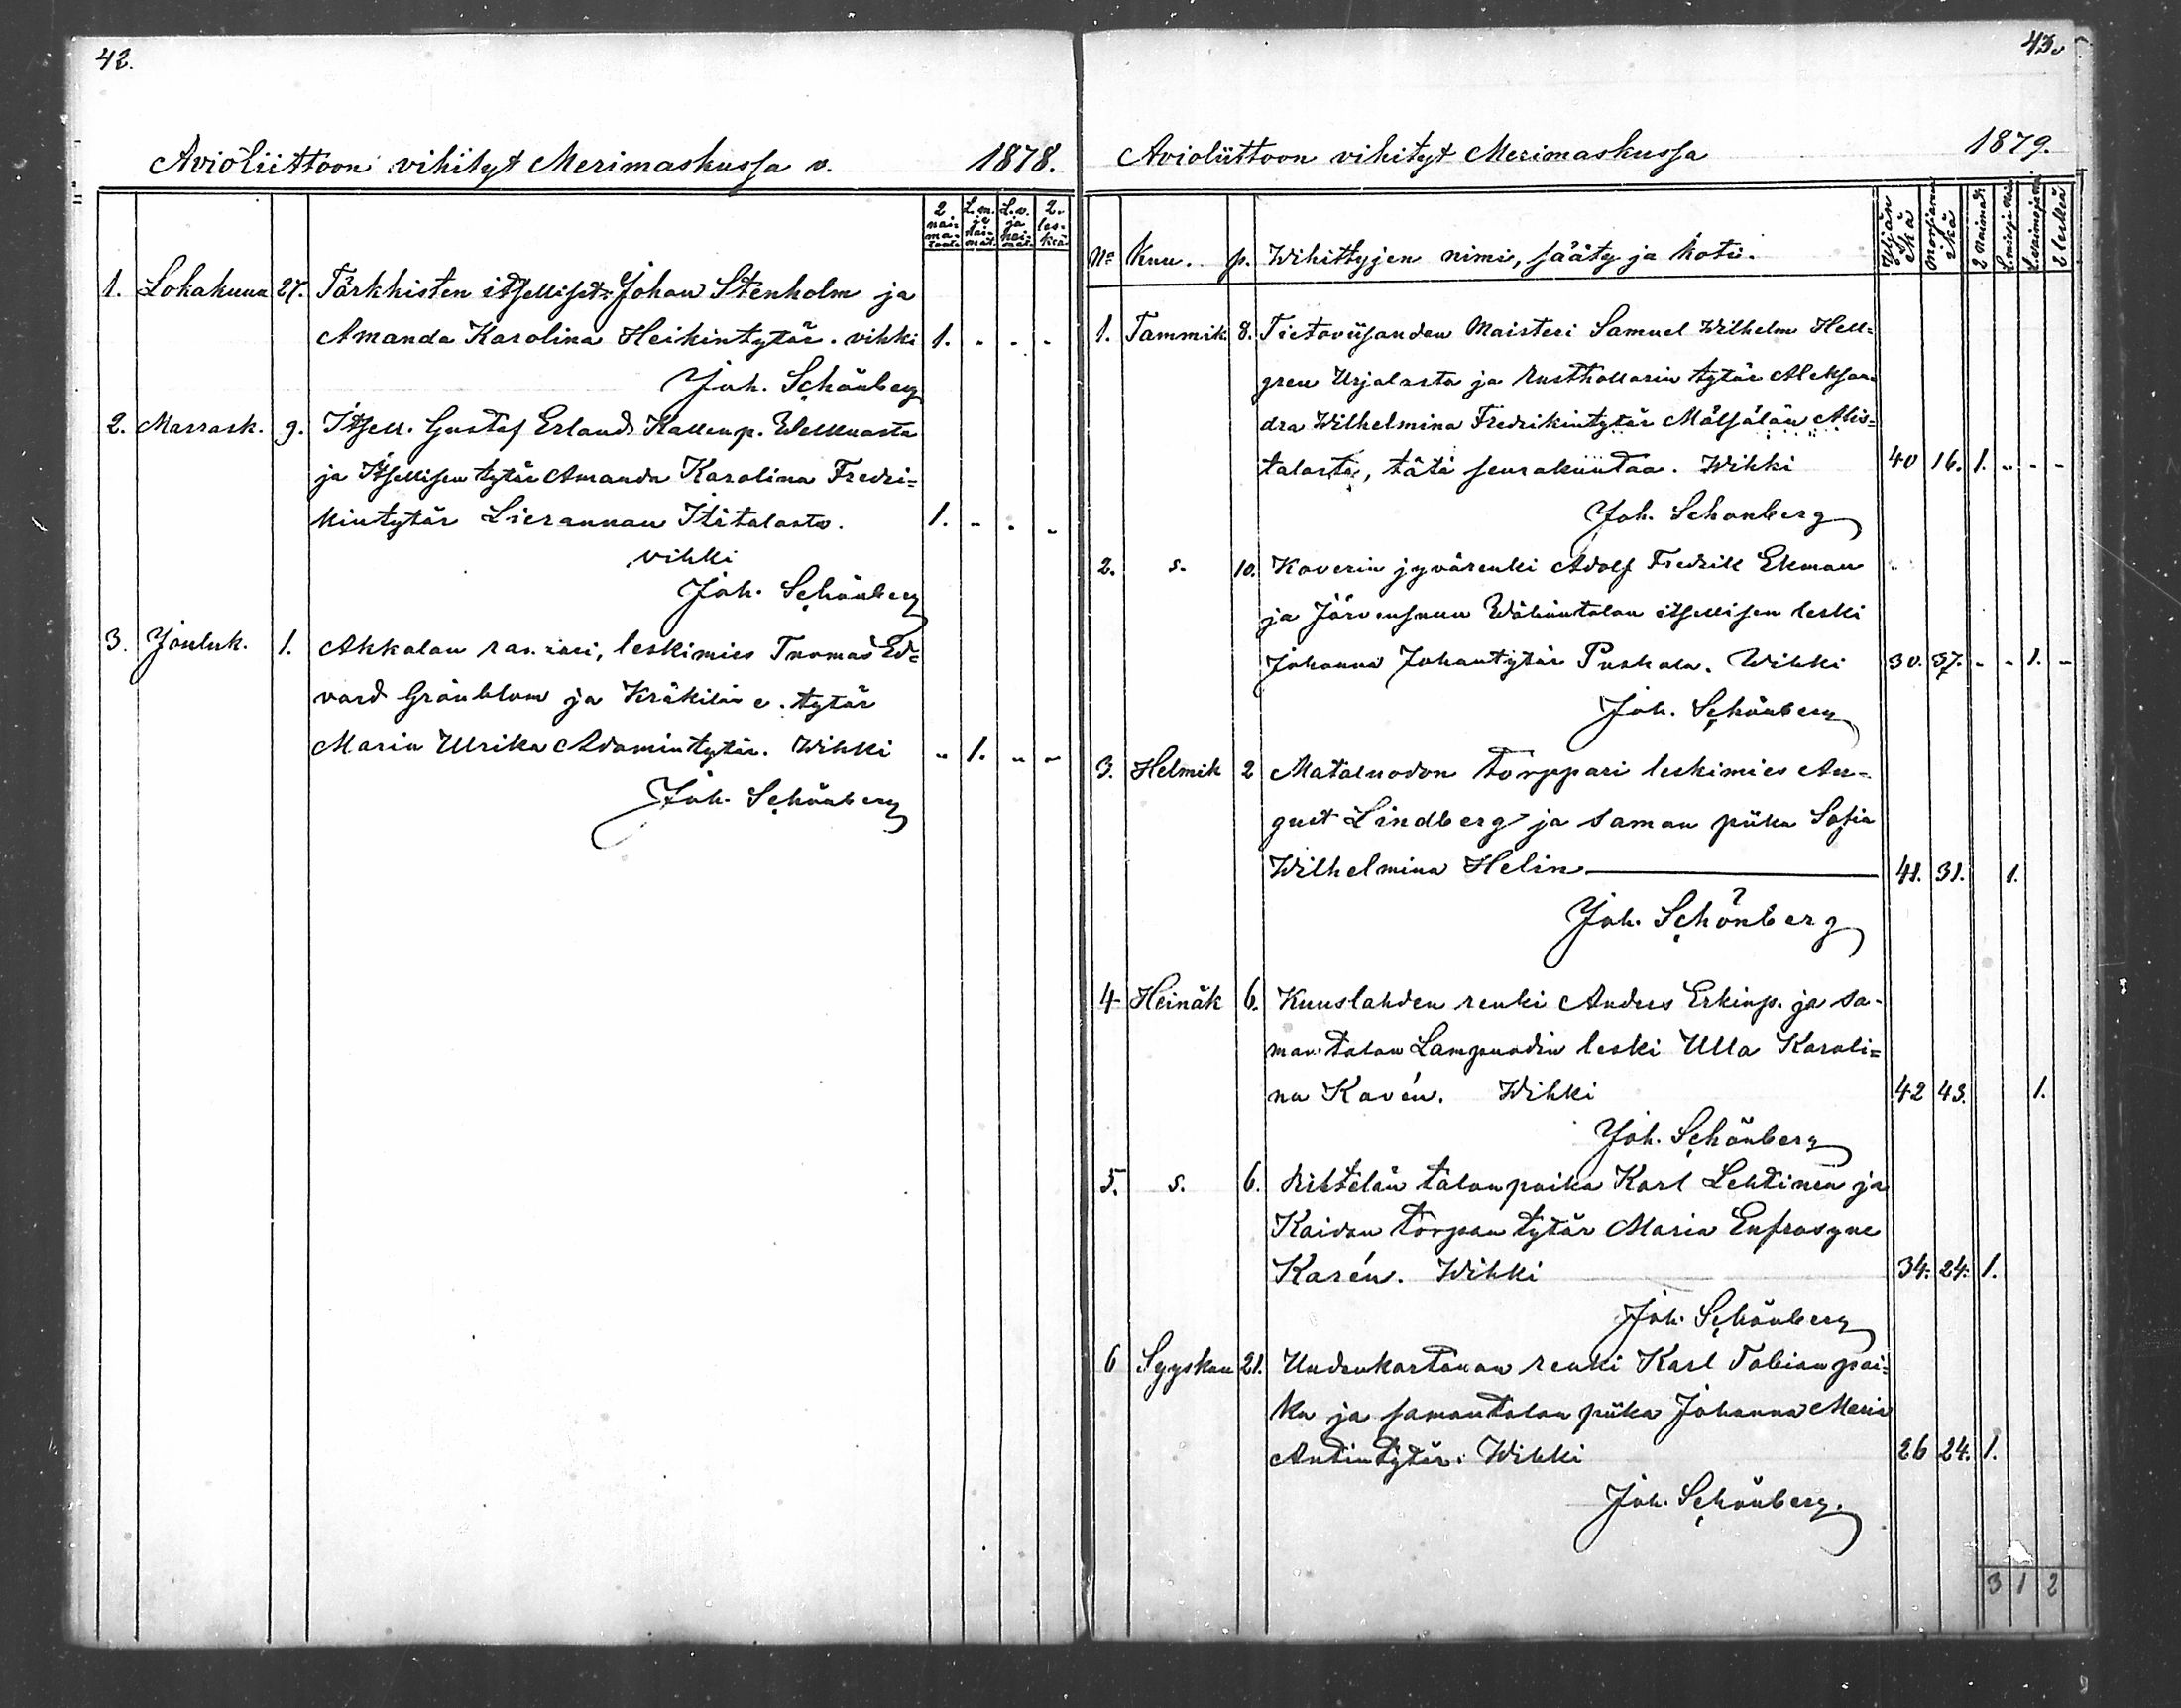 42.
Avioliittoon vihityt Merimaskussa v. 1878.
2 nai-ma-tonta L.m. ja nai-mat. L.v. ja nai-mat. 2. les-keä
1. Lokakuun 27. Tärkkisten itselliset Johan Stenholm ja
Amanda Karolina Heikintytär. vihki 1. - - -
Joh. Schönberg
2. Marrask. 9. Itsell. Gustaf Erland Kallenp.
ja Itsellisen tytär Amanda Karolina Fredri=
kintytär Lierannan Ititalosta. 1. - - -
vihki
Joh. Schönberg
3. Jouluk. 1. Akkalan leskimies Tuomas Ed=
vard Grönblom ja e. tytär
Maria Ulrika Adamintytär. Wihki - 1. - -
Joh. Schönberg
43.
Avioliittoon vihityt Merimaskussa 1879.
No Kuu. p. Wihittyjen nimi, sääty ja koti. Yljän ikä Morsiamen ikä 2 naimat. 2 leskeä
1. Tammik. 8. Maisteri Samuel Wilhelm Hell=
gren Urjalasta ja Rusthollarin tytär Aleksan=
dra Wilhelmina Fredrikintytär Alis=
talosta, tätä seurakuntaa. Wihki 40 16. 1. - - -
Joh. Schönberg
2. s. 10. Koverin jyvärenki Adolf Fredrik Ekman
ja Järvensuun Wähäntalon itsellisen leski
Johanna Johantytär Puskala. Wihki 30. 37. - - 1. -
Joh. Schönberg
3. Helmik 2 Mataluodon torppari leskimies Au=
gust Lindberg ja saman piika Sofia
Wilhelmina Helin 41. 31. 1.
Joh. Schönberg
4 Heinäk 6. Kuuslahden renki Anders Erkinp. ja sa-
man talon Lampuodin leski Ulla Karoli=
na Kavén. Wihki 42 43. 1.
Joh. Schönberg
5. s. 6. talonpoika Karl Lehtinen ja
Kaidan torpan tytär Maria Eufrosyne
Karén. Wihki 34. 24. 1.
Joh. Schönberg
6 Syyskuu 21. Uudenkartanon renki Karl Tobianpoi=
ka ja samantalon piika Johanna Maria
Antintytär. Wihki 26 24. 1.
Joh. Schönberg.
3 1 2